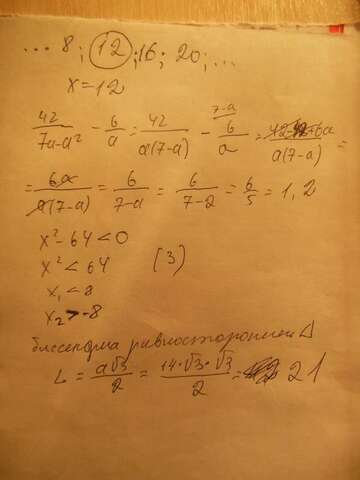 ... 8; 12; 16; 20; ...
x = 12
42/(7a-a²) - 6/a = 42/(a(7-a)) - 6/a (7-a = /(a(7-a)) =
= 6a/(a(7-a)) = 6/(7-a) = 6/(7-2) = 6/5 = 1,2
x² - 64 < 0
x² < 64 (3)
x₁ < 8
x₂ > -8
равносторонней Δ
L = a√3/2 = 14·√3·√3/2 = 21